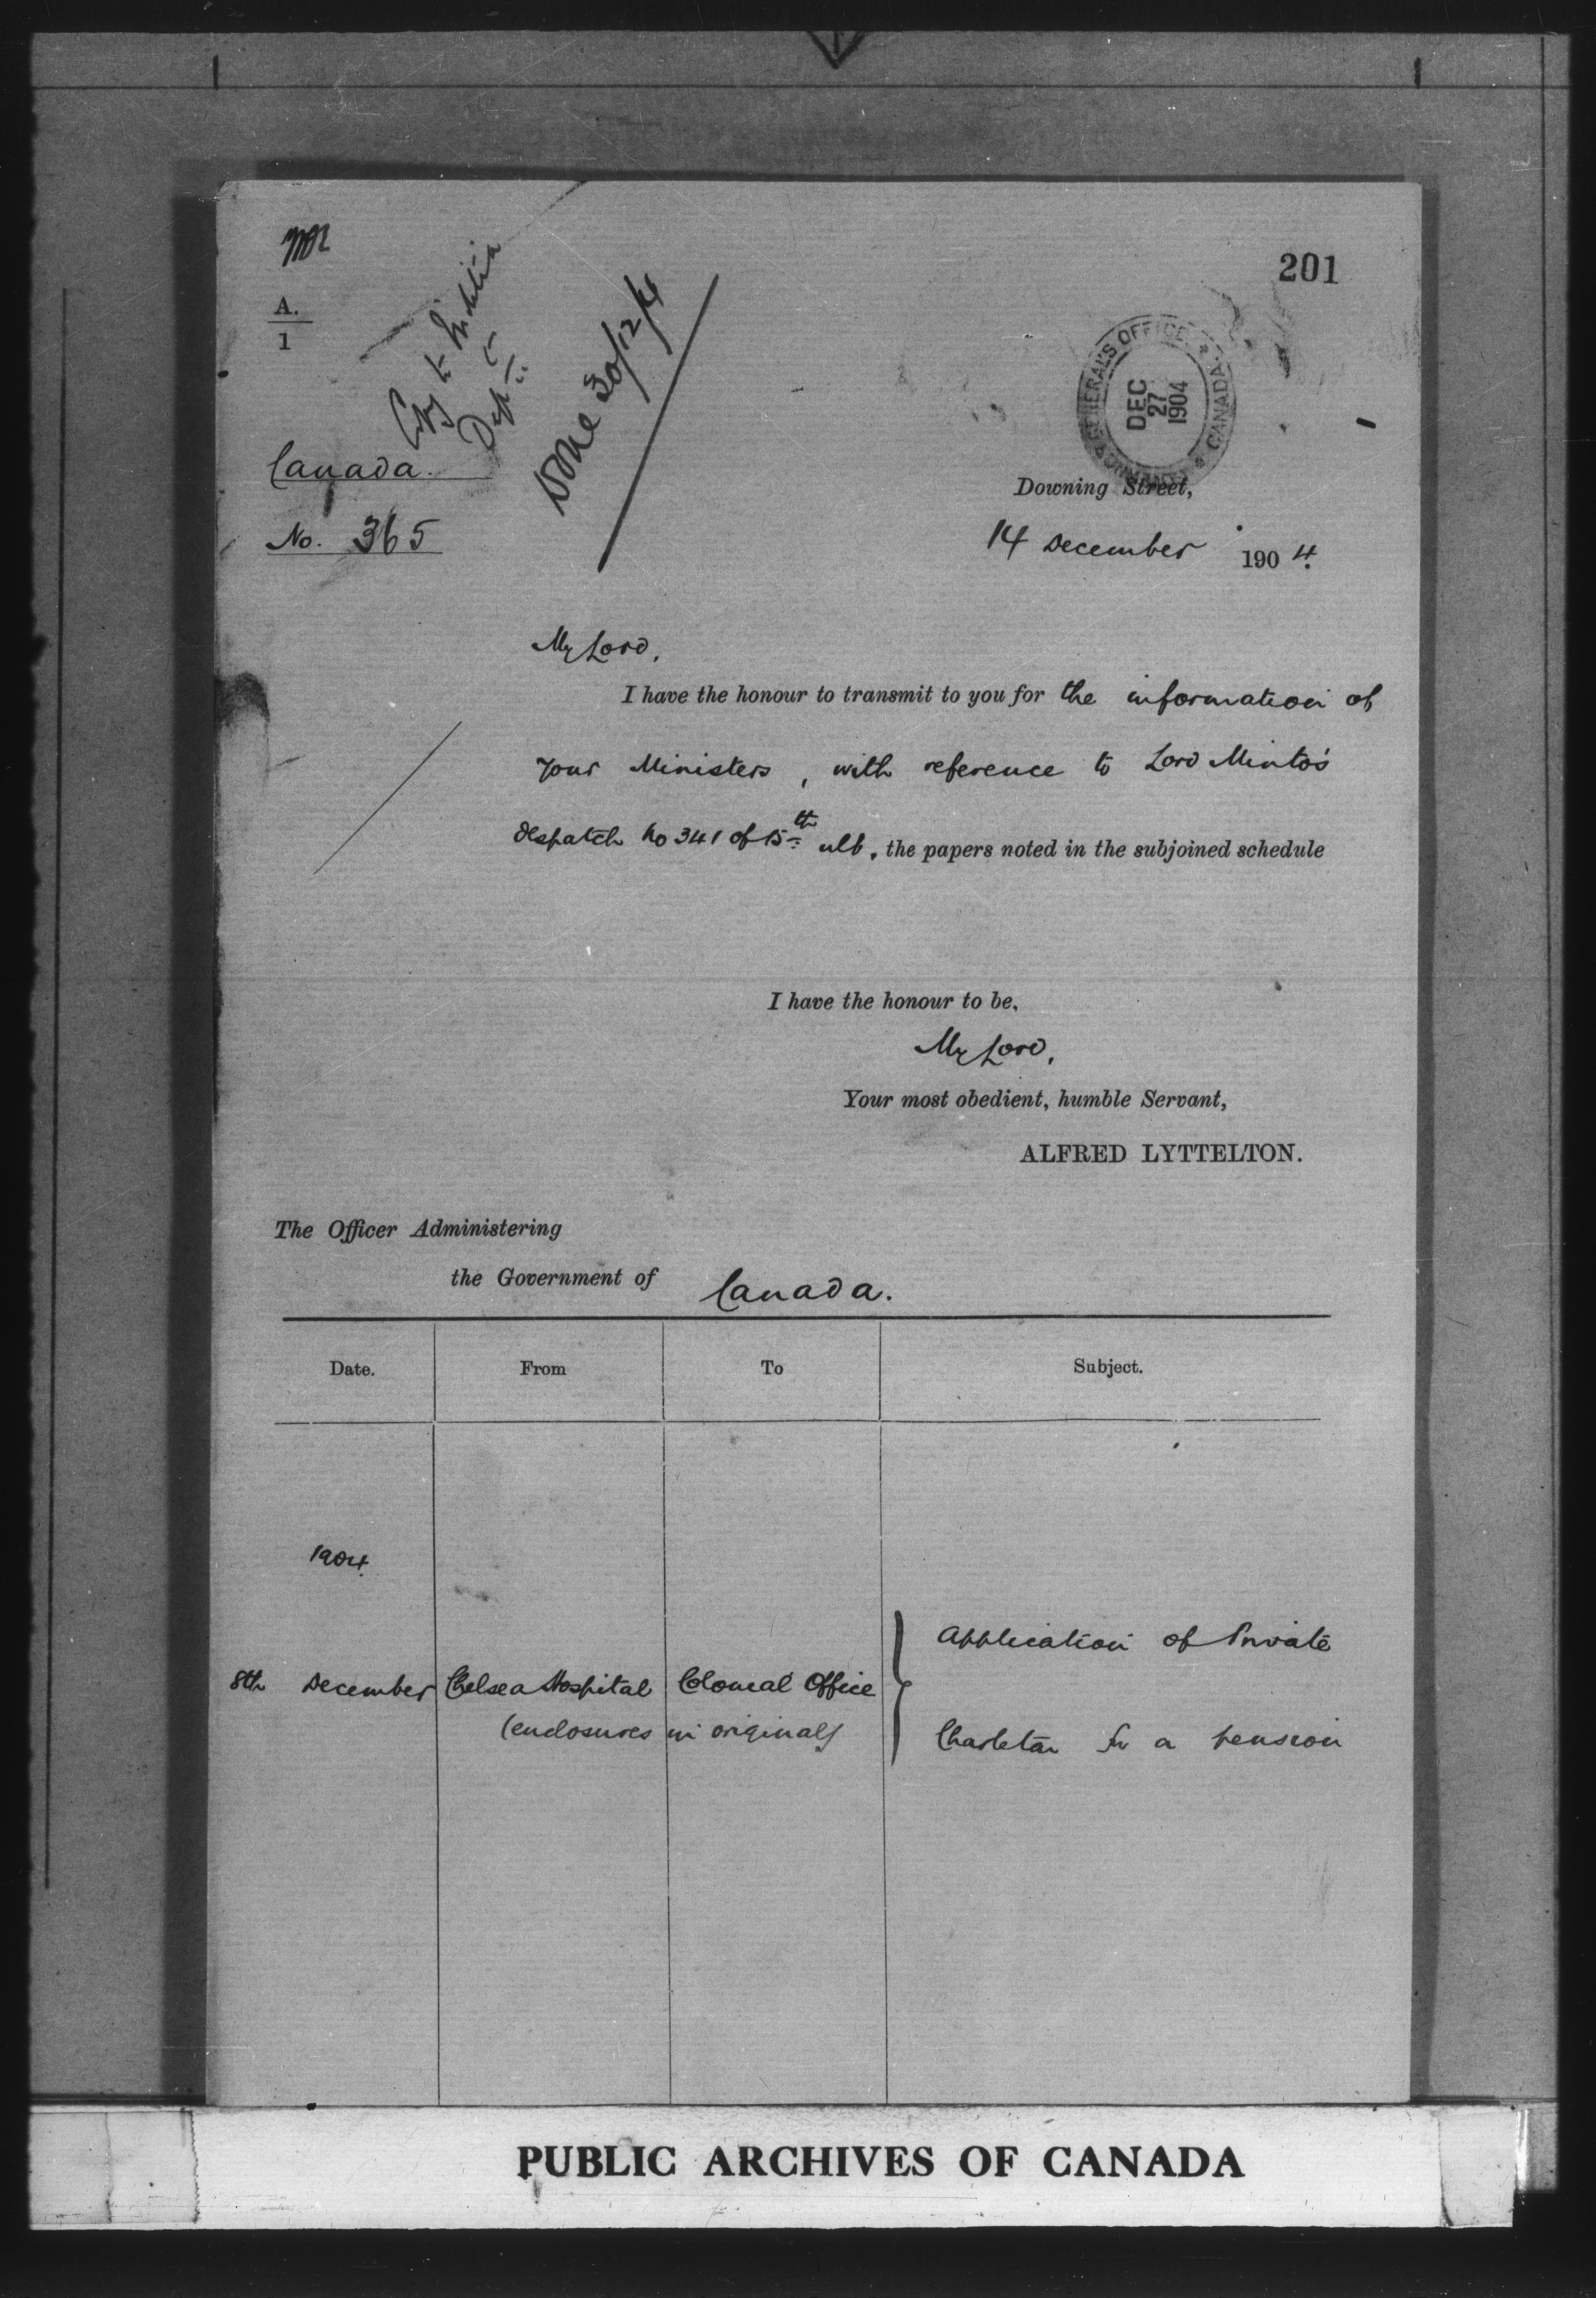 201
A.
1
Copy to Militia
Dept
Done 30/12/4
GOVERNOR GENERAL'S OFFICE
CANADA
DEC
27
1904
Canada.
No. 365
Downing Street,
14 December 1904.
My Lord,
I have the honour to transmit to you for the information of
your Ministers, with reference to Lord Minto's
despatch No 341 of 15th ult, the papers noted in the subjoined schedule
I have the honour to be,
My Lord,
Your most obedient, humble Servant,
ALFRED LYTTELTON.
The Officer Administering
the Government of Canada.
Date. From To Subject.
1904.
Application of Private
8th December Chelsea Hospital Colonial Office
(enclosures in original)
Charleton for a pension
PUBLIC ARCHIVES OF CANADA